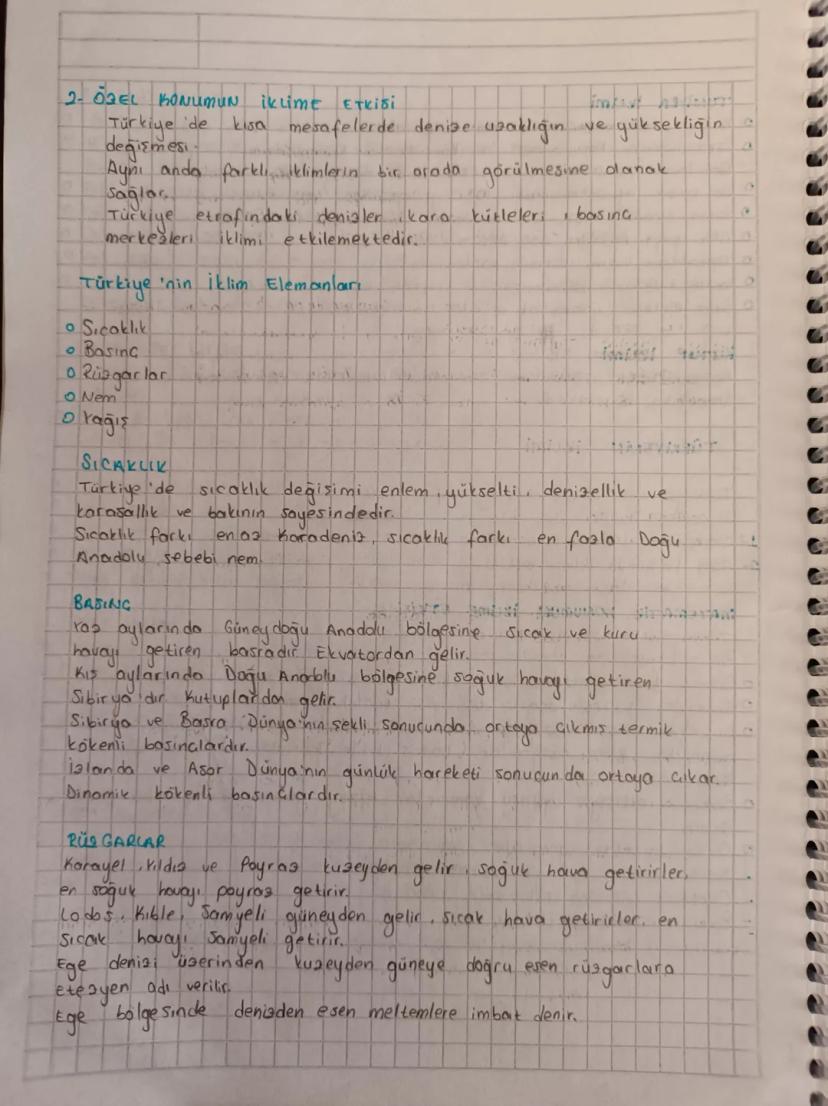 2- ÖZEL KONUMUN İKLİME ETKİSİ
Türkiye'de kısa mesafelerde denize uzaklığın ve yüksekliğin
değişmesi.
Aynı anda farklı iklimlerin bir arada görülmesine olanak
sağlar.
Türkiye etrafındaki denizler, kara kütleleri, basınç
merkezleri iklimi etkilemektedir.
Türkiye'nin İklim Elemanları
Sıcaklık
Basınç
Rüzgarlar
Nem
Yağış
SICAKLIK
Türkiye'de sıcaklık değişimi enlem, yükselti, denizellik ve
karasallık ve bakının sayesindedir.
Sıcaklık farkı en az Karadeniz, sıcaklık farkı en fazla Doğu
Anadolu sebebi nem.
BASINÇ
Yaz aylarında Güneydoğu Anadolu bölgesine sıcak ve kuru
havayı getiren basradır Ekvatordan gelir.
Kış aylarında Doğu Anadolu bölgesine soğuk havayı getiren
Sibirya'dır Kutuplardan gelir.
Sibirya ve Basra Dünya'nın şekli sonucunda ortaya çıkmış termik
kökenli basınçlardır.
İzlanda ve Asor Dünya'nın günlük hareketi sonucunda ortaya çıkar.
Dinamik kökenli basınçlardır.
RÜZGARLAR
Karayel, Yıldız ve Poyraz kuzeyden gelir, soğuk hava getirirler,
en soğuk havayı poyraz getirir.
Lodos, Kıble, Samyeli güneyden gelir, sıcak hava getirirler, en
sıcak havayı Samyeli getirir.
Ege denizi üzerinden kuzeyden güneye doğru esen rüzgarlara
etezyen adı verilir.
Ege bölgesinde denizden esen meltemlere imbat denir.